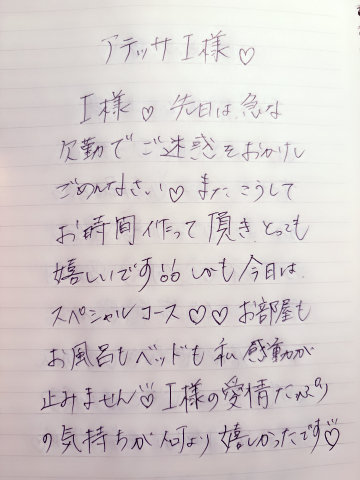 アテッサ I様♡
I様♡先日は、急な
欠勤でご迷惑をおかけし
ごめんなさい♡また、こうして
お時間作って頂き、とっても
嬉しいです しかも今日は、
スペシャルコース♡♡お部屋も
お風呂もベッドも私感動が
止みません♡I様の愛情たっぷり
の気持ちが何より嬉しかったです♡